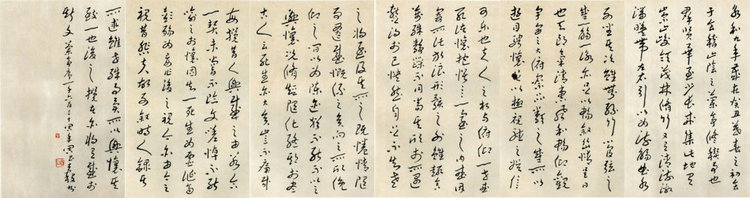 永和九年歲在癸丑暮春之初會
于會稽山陰之蘭亭修禊事也
群賢畢至少長咸集此地有
崇山峻領茂林修竹又有清流激
湍暎帶左右引以為流觴曲水
列坐其次雖無絲竹管弦之
盛一觴一詠亦足以暢敘幽情是日
也天朗氣清惠風和暢仰觀
宇宙之大俯察品類之盛所以
遊目騁懷足以極視聽之娛信
可樂也夫人之相與俯仰一世或
取諸懷抱悟言一室之內或因寄
所託放浪形骸之外雖趣舍
萬殊靜躁不同當其欣於所遇
暫得於己快然自足不知老
之將至及其所之既惓情隨
事遷感慨係之矣向之所欣俛
仰之間以為陳迹猶不能不以之
興懷況修短隨化終期於盡
古人云死生亦大矣豈不痛哉
每攬昔人興感之由若合
一契未嘗不臨文嗟悼不能
喻之於懷固知一死生為虛誕齊
彭殤為妄作後之視今亦由今之
視昔悲夫故列敘時人錄其
所述雖世殊事異所以興懷其
致一也後之攬者亦將有感於
斯文 蘭亭序